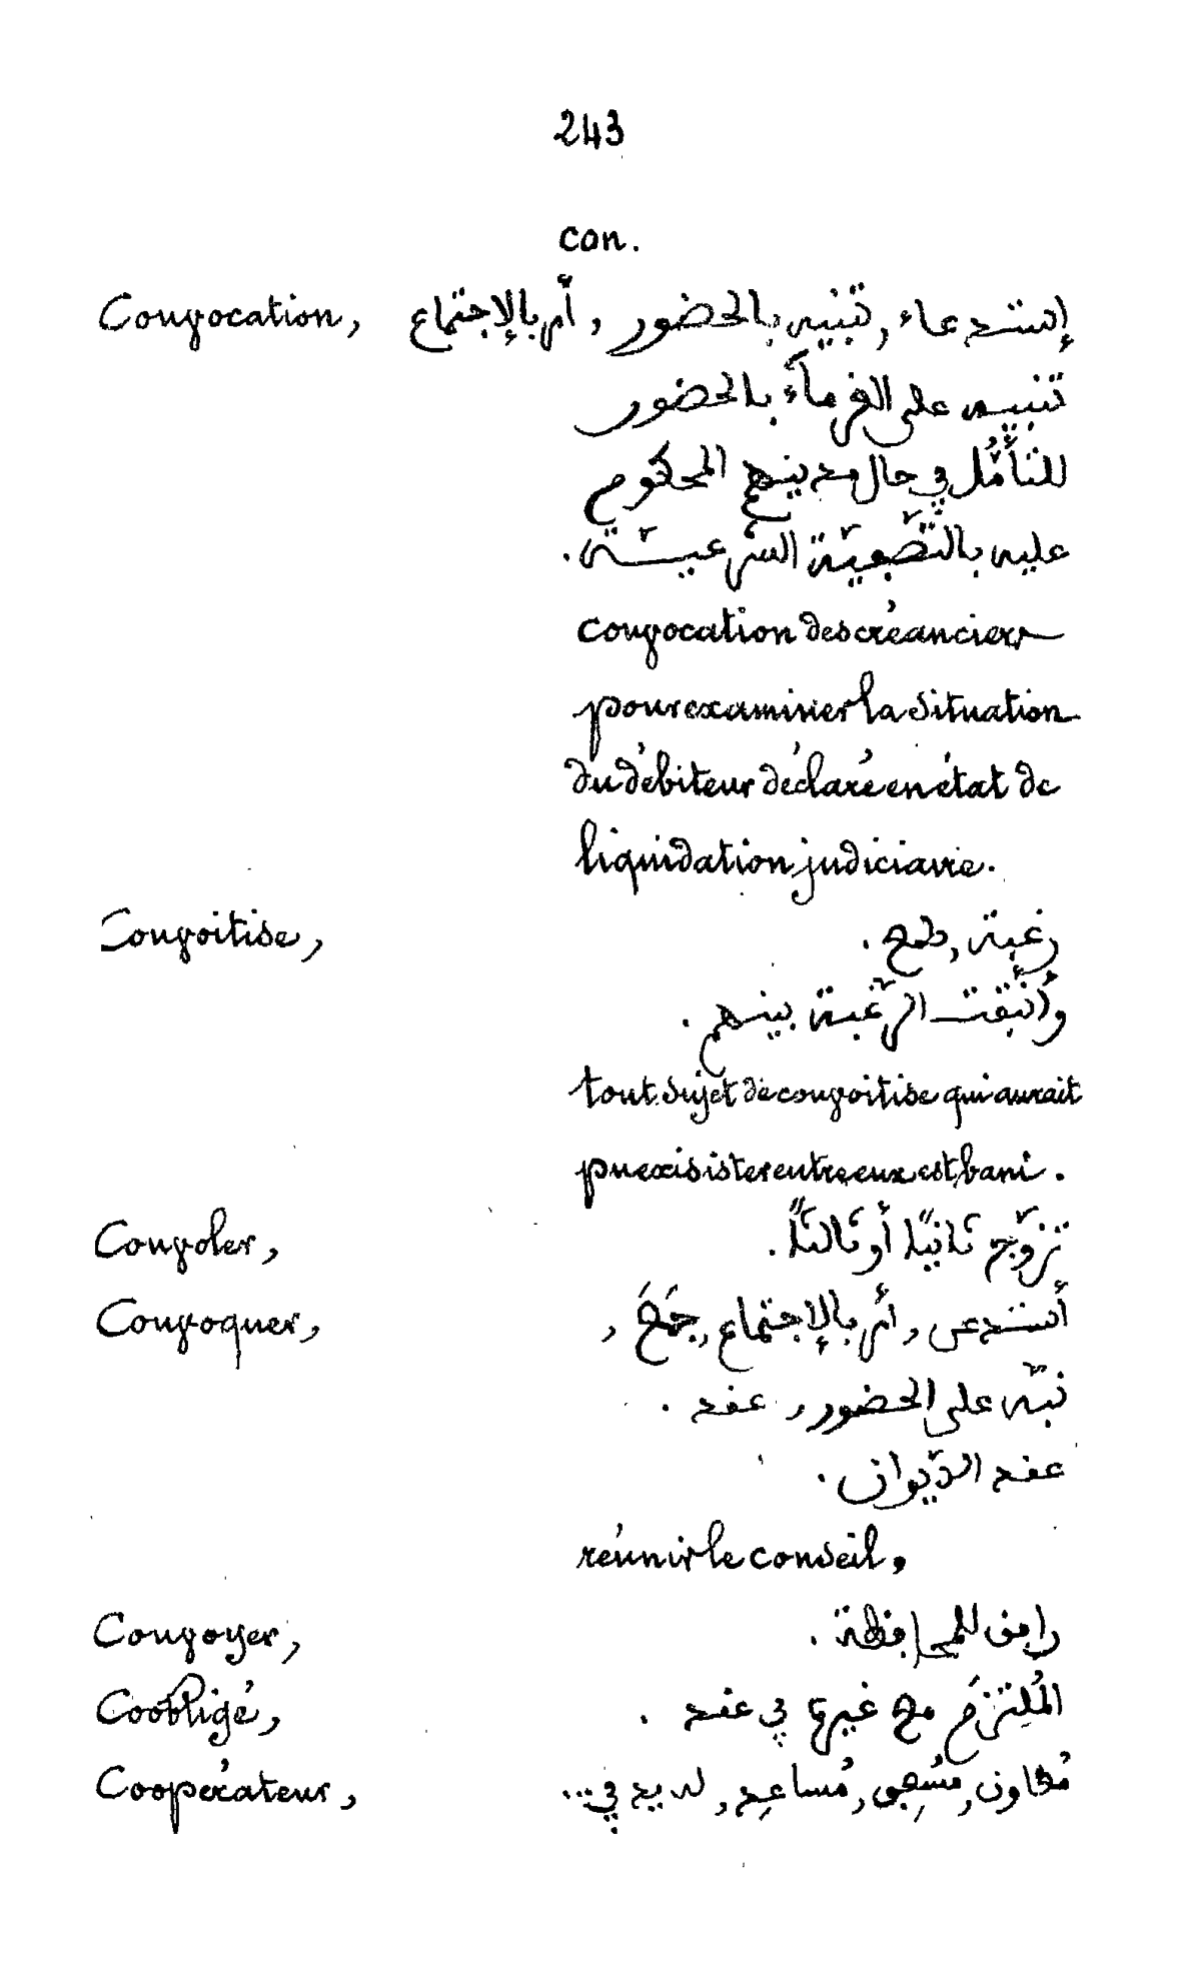 243
con.
Convocation, إستدعاء, تنبيه بالحضور, أمر بالإجتماع
تنبيه على الغرمآء بالحضور
للتأمُّل في حال مدينهم المحكوم
عليه بالتّصفيّة الشرعيّة.
convocation des créanciers
pour examiner la situation
du débiteur déclaré en état de
liquidation judiciaire.
Convoitise, رغبة, طمع.
الرّغبة بينهم.
tout sujet de convoitise qui aurait
pu exisister entre eux est bani.
Convoler, تزوّج ثانيًا أو ثالثًا.
Convoquer, أستدعى, أمر بالإجتماع, جَمَعَ,
نبّه على الحضور, عقد.
عقد الدّيوان.
réunir le conseil,
Convoyer, رافق للمحافظة.
Coobligé, المُلتزم مع غيره في عقد.
Coopérateur, مُعاون, مُساعِد, في...